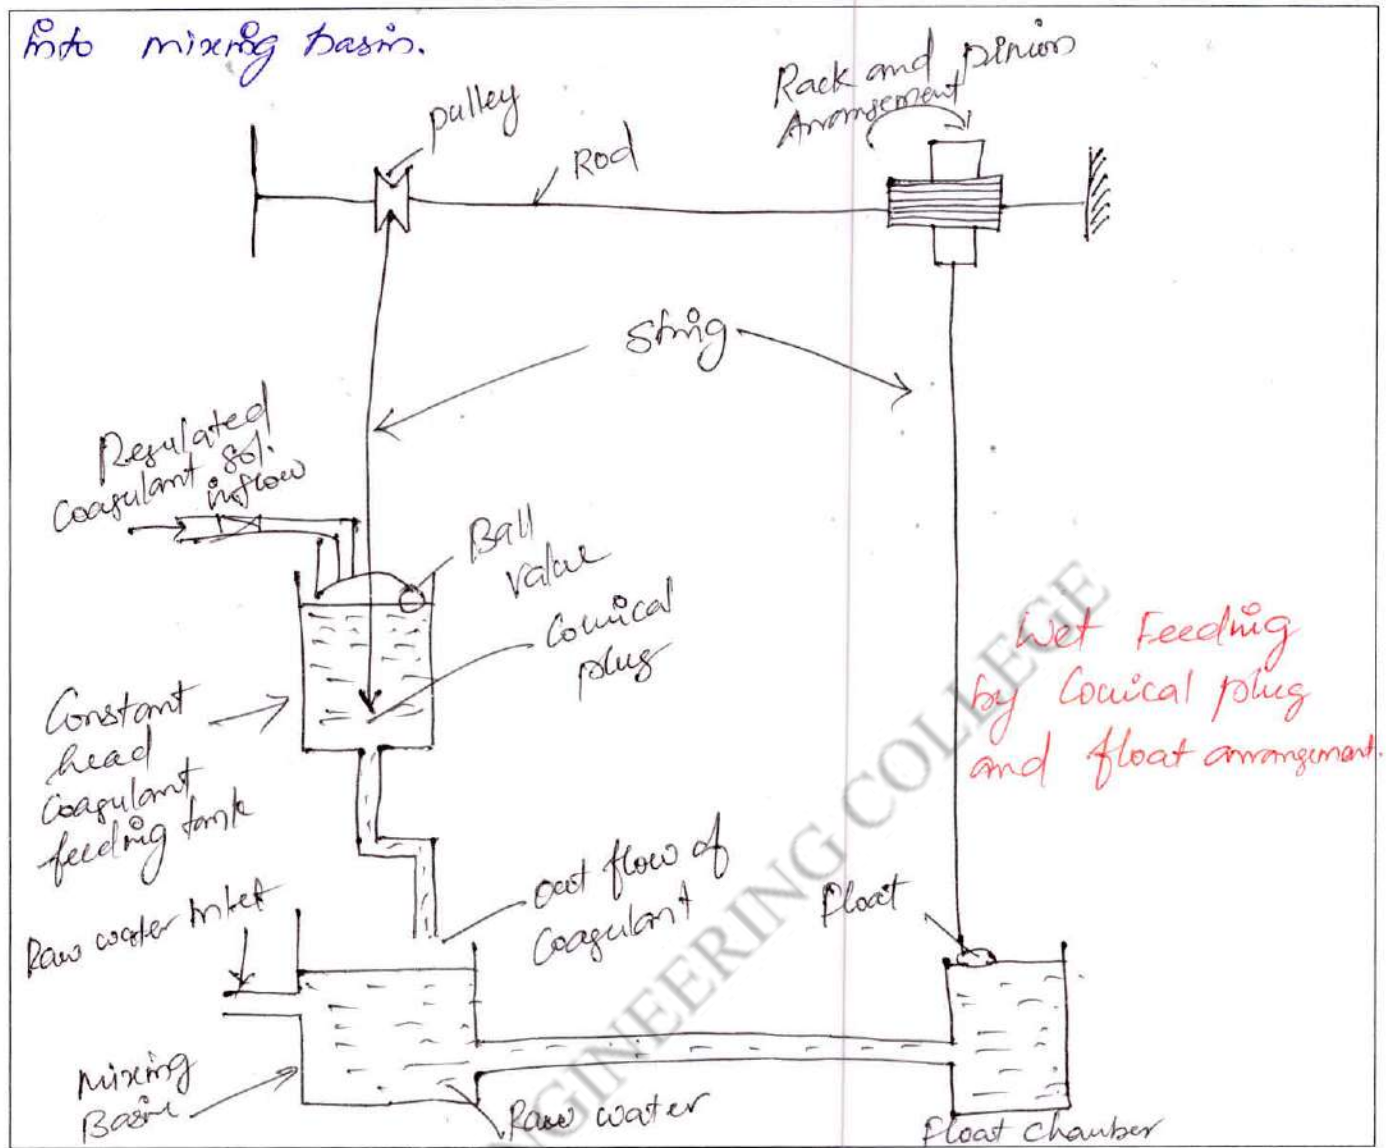 into mixing basin.
Rack and pinion
Arrangement
pulley
Rod
String
Regulated
Coagulant sol.
inflow
Ball
valve
Conical
plug
Constant
head
Coagulant
feeding tank
Wet Feeding
by Conical plug
and float arrangement.
Raw water Inlet
out flow of
Coagulant
Float
Mixing
Basin
Raw water
Float chamber
ENGINEERING COLLEGE